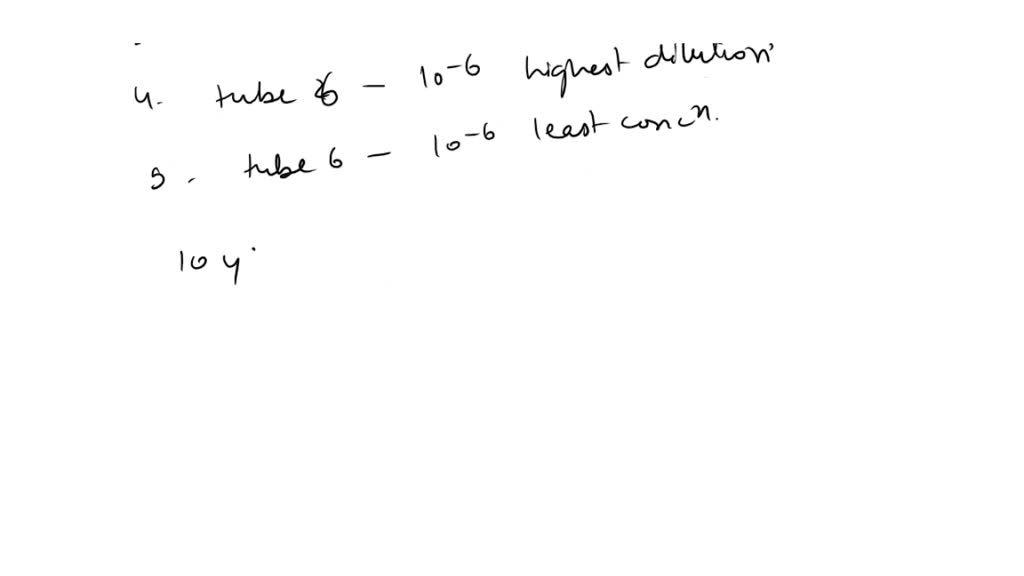 4. tube 6 - 10⁻⁶ highest dilution
5. tube 6 - 10⁻⁶ least concⁿ.
10 y